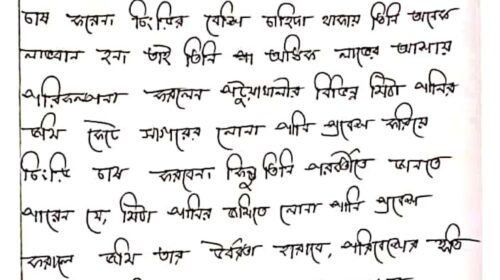 চাষ করেন। চিংড়ির বেশি চাহিদা থাকায় তিনি অনেক
লাভবান হন। তাই তিনি অধিক লাভের আশায়
পরিকল্পনা করলেন পটুয়াখালীর বিভিন্ন মিঠা পানির
জমি কেটে সাগরের লোনা পানি প্রবেশ করিয়ে
চিংড়ি চাষ করবেন। কিন্তু তিনি পরবর্তীতে জানতে
পারেন যে, মিঠা পানির জমিতে লোনা পানি প্রবেশ
করালে জমি তার উর্বরতা হারাবে, পরিবেশের ক্ষতি